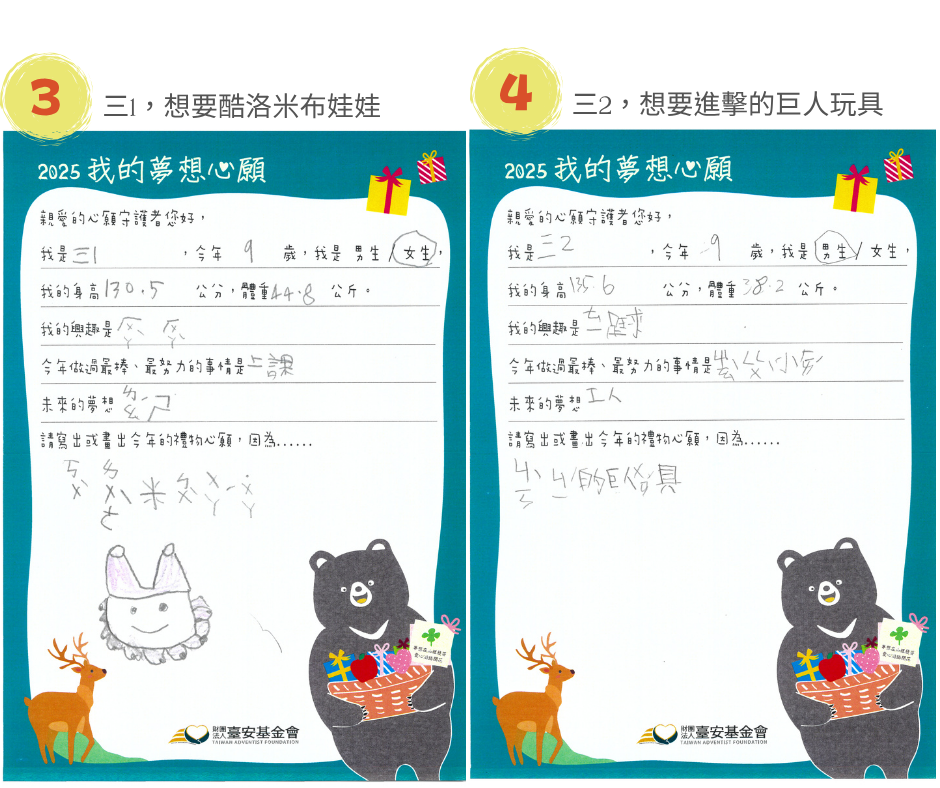 3
三1，想要酷洛米布娃娃
2025 我的夢想心願
親愛的心願守護者您好，
我是三1，今年 9 歲，我是 男生 / 女生，
我的身高130.5 公分，體重44.8 公斤。
我的興趣是
今年做過最棒、最努力的事情是上課
未來的夢想
請寫出或畫出今年的禮物心願，因為......
米
夢想在山城發芽
財團法人臺安基金會
TAIWAN ADVENTIST FOUNDATION
4
三2，想要進擊的巨人玩具
2025 我的夢想心願
親愛的心願守護者您好，
我是三2，今年 9 歲，我是 男生 / 女生，
我的身高135.6 公分，體重38.2 公斤。
我的興趣是
今年做過最棒、最努力的事情是
未來的夢想工人
請寫出或畫出今年的禮物心願，因為......
的巨人具
財團法人臺安基金會
TAIWAN ADVENTIST FOUNDATION